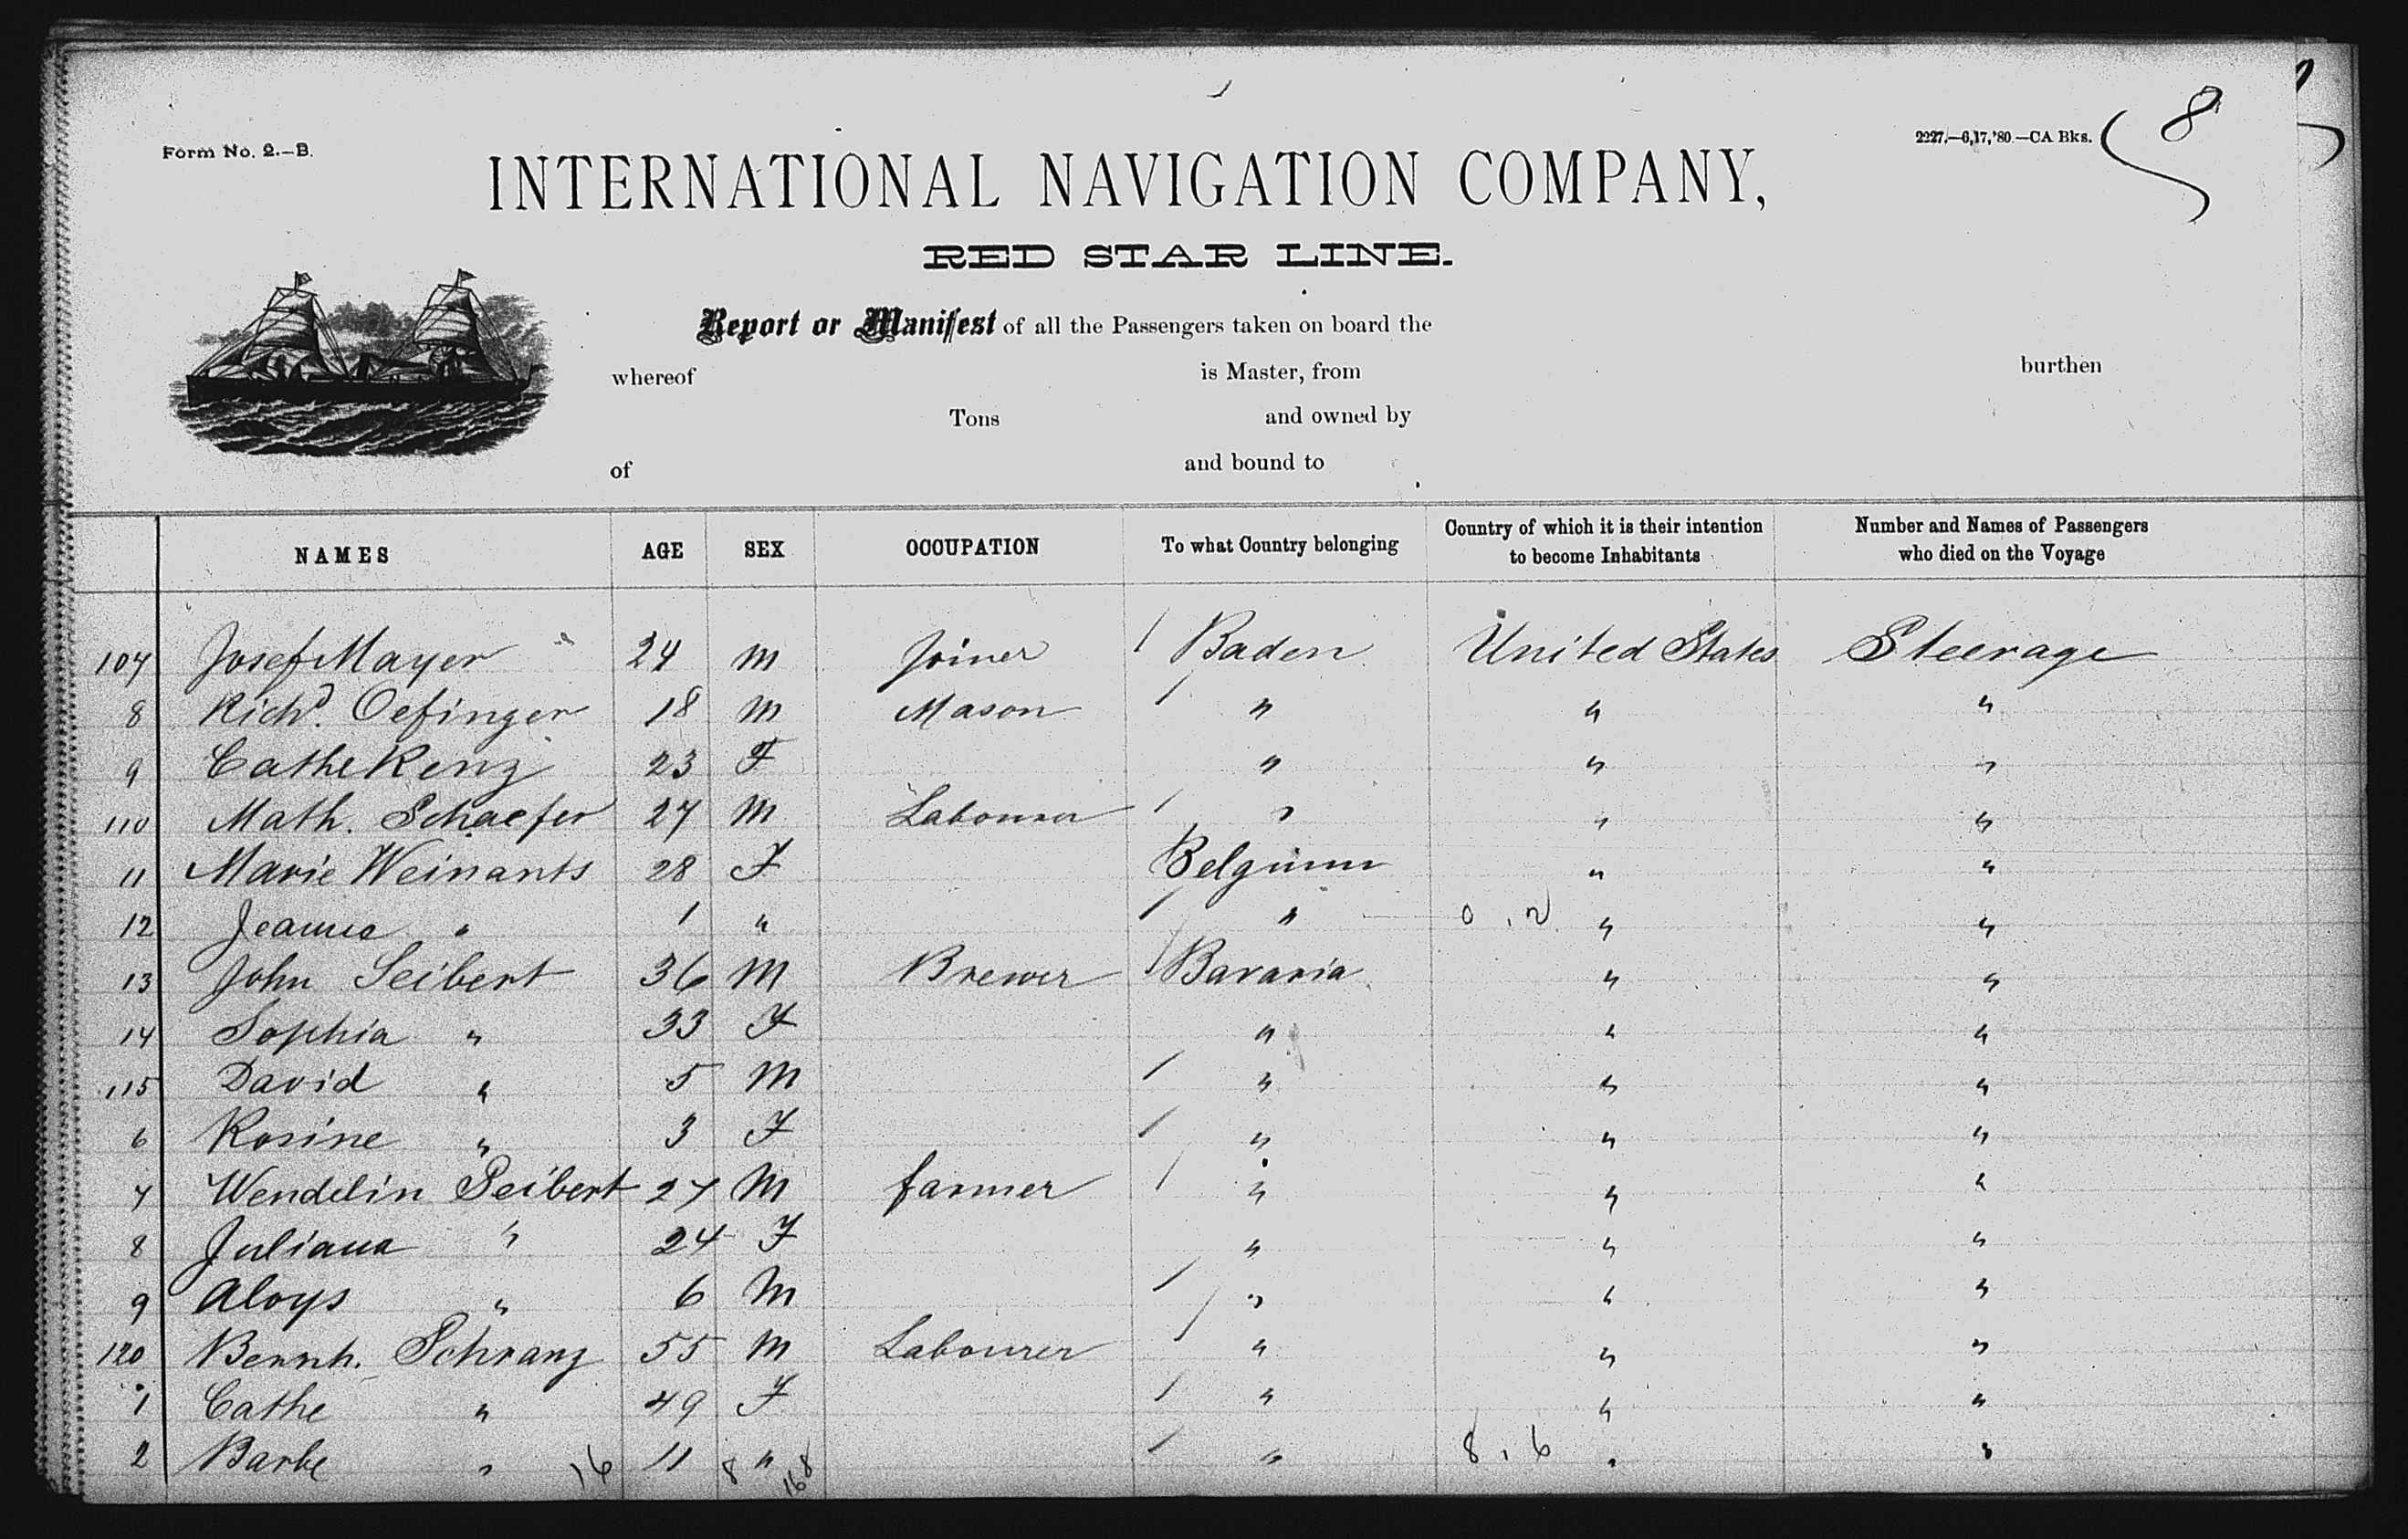 8
Form No. 2.—B.
2227,—6,17,'80.—CA Bks.
INTERNATIONAL NAVIGATION COMPANY,
RED STAR LINE.
Report or Manifest of all the Passengers taken on board the
whereof is Master, from burthen
Tons and owned by
of and bound to
NAMES AGE SEX OCCUPATION To what Country belonging Country of which it is their intention to become Inhabitants Number and Names of Passengers who died on the Voyage
107 Josef Mayer 24 M Joiner / Baden United States Steerage
8 Richd. Oefinger 18 M Mason / " " "
9 Cathe Renz 23 F " " "
110 Math. Schaefer 27 M Labourer / " " "
11 Marie Weinants 28 F Belgium " "
12 Jeanne " 1 " / " 0 , 2 " "
13 John Seibert 36 M Brewer / Bavaria " "
14 Sophia " 33 F " " "
115 David " 5 M / " " "
6 Rosine " 3 F / " " "
7 Wendelin Seibert 27 M farmer / " " "
8 Juliana " 24 F " " "
9 Aloys " 6 M / " " "
120 Bernh. Schranz 55 M Labourer / " " "
1 Cathe " 49 F / " " "
2 Barbe " 16 11 8 " 168 / " 8 , 6 " "